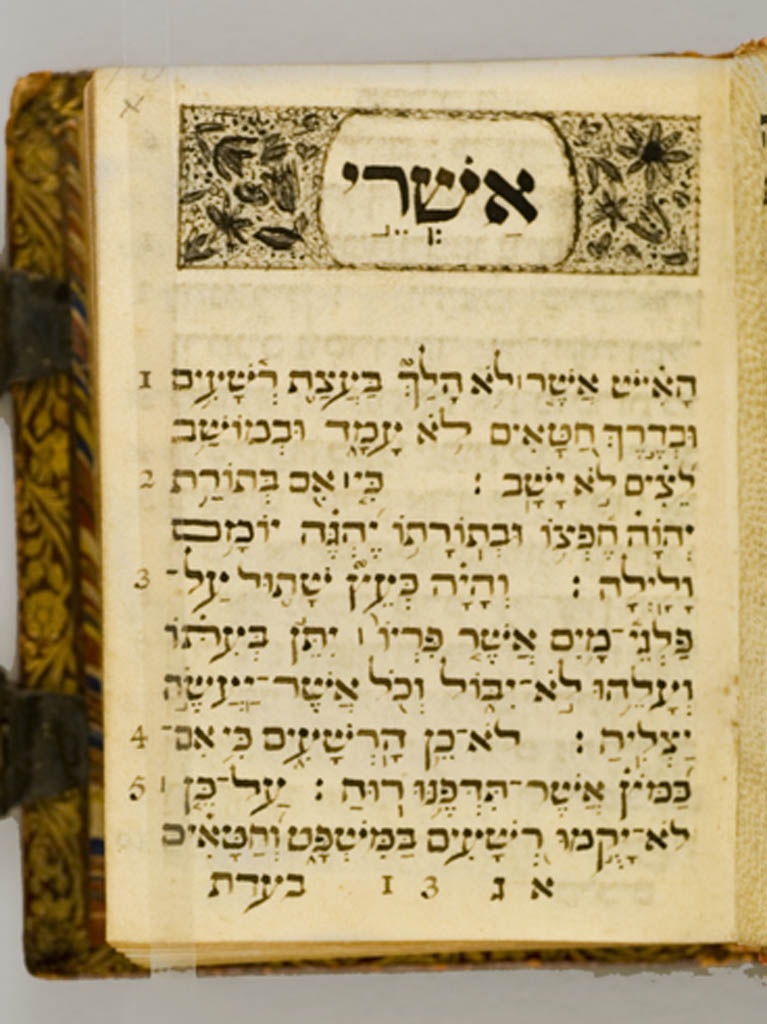 אַשְׁרֵי
1 הָאִישׁ אֲשֶׁר ׀ לֹא הָלַךְ בַּעֲצַת רְשָׁעִים
וּבְדֶרֶךְ חַטָּאִים לֹא עָמָד וּבְמוֹשַׁב
2 לֵצִים לֹא יָשָׁב : כִּי ׀ אִם בְּתוֹרַת
יְהוָֹה חֶפְצוֹ וּבְתוֹרָתוֹ יֶהְגֶּה יוֹמָם
3 וָלָיְלָה : וְהָיָה כְּעֵץ שָׁתוּל עַל־
פַּלְגֵי־מָיִם אֲשֶׁר פִּרְיוֹ ׀ יִתֵּן בְּעִתּוֹ
וְעָלֵהוּ לֹא־יִבּוֹל וְכֹל אֲשֶׁר־יַעֲשֶׂה
4 יַצְלִיחַ : לֹא־כֵן הָרְשָׁעִים כִּי אִם־
5 כַּמּוֹץ אֲשֶׁר־תִּדְּפֶנּוּ רוּחַ : עַל־כֵּן ׀
לֹא־יָקֻמוּ רְשָׁעִים בַּמִּשְׁפָּט וְחַטָּאִים
א נ 13 בעדת